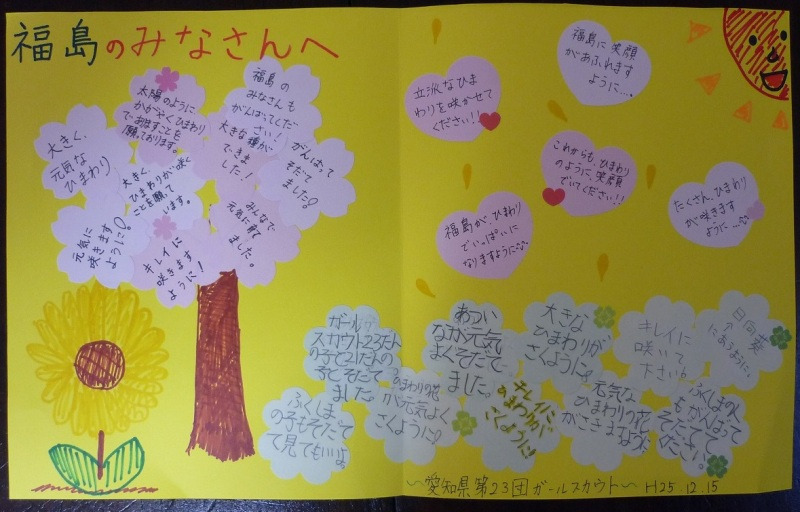 福島のみなさんへ
大きく、
元気な
ひまわり
太陽のように
かがやくひまわり
であますことを
願っております。
福島の
みなさんも
がんばってくだ
さい!
大きな種が
できま
した!
がんばって
そだて
ました!
大きく、
ひまわりが咲く
ことを願って
います。
元気に
咲きます
ように!
キレイに
咲きます
ように!
みんなで
元気に育て
ました。
立派なひま
わりを咲かせて
ください!!
福島に笑顔
があふれます
ように…。
これからも、ひまわり
のように、笑顔
でいてください!!
福島が、ひまわり
でいっぱいに
なりますように
たくさん、ひまわり
が咲きます
ように…
ガール
スカウト23だん
の子と21だんの
子とそだて
ました
あつい
なか元気
よくそだて
ました。
大きな
ひまわりが
さくように。
キレイに
咲いて
下さい
日向葵
にあるように、
ふくしま
の子もそだて
て見てもいいよ
ひまわりの花
が元気よく
さくように
キレイに
ひまわりが
さくように
元気な
ひまわりの花
がさきますように
ふくしまの人
もがんばって
そだてて
ください。
~愛知県第23団ガールスカウト~ H25.12.15